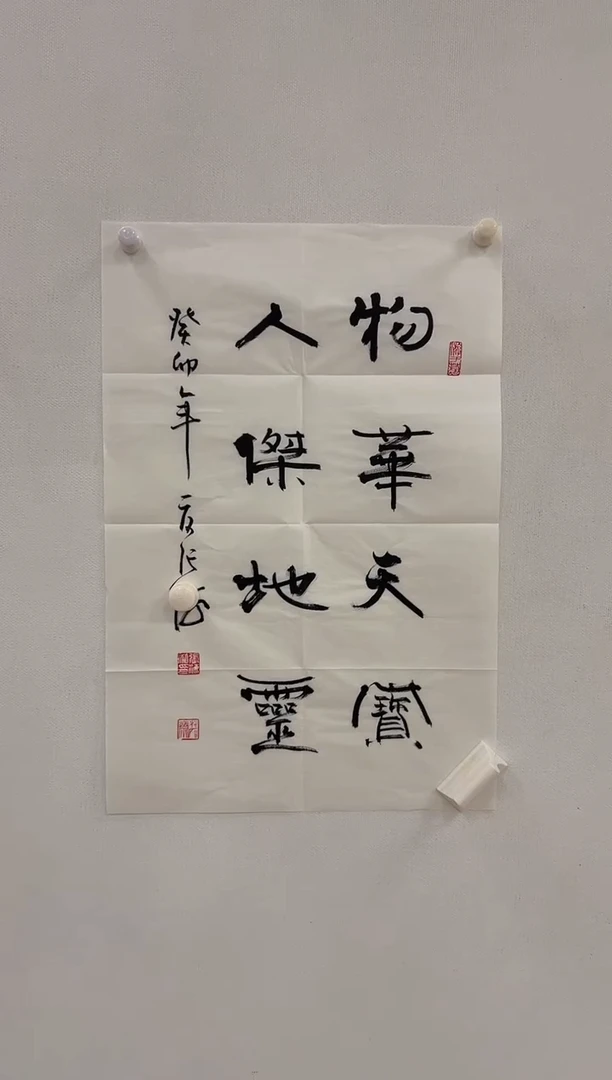 物華天寶
人傑地靈
癸卯年